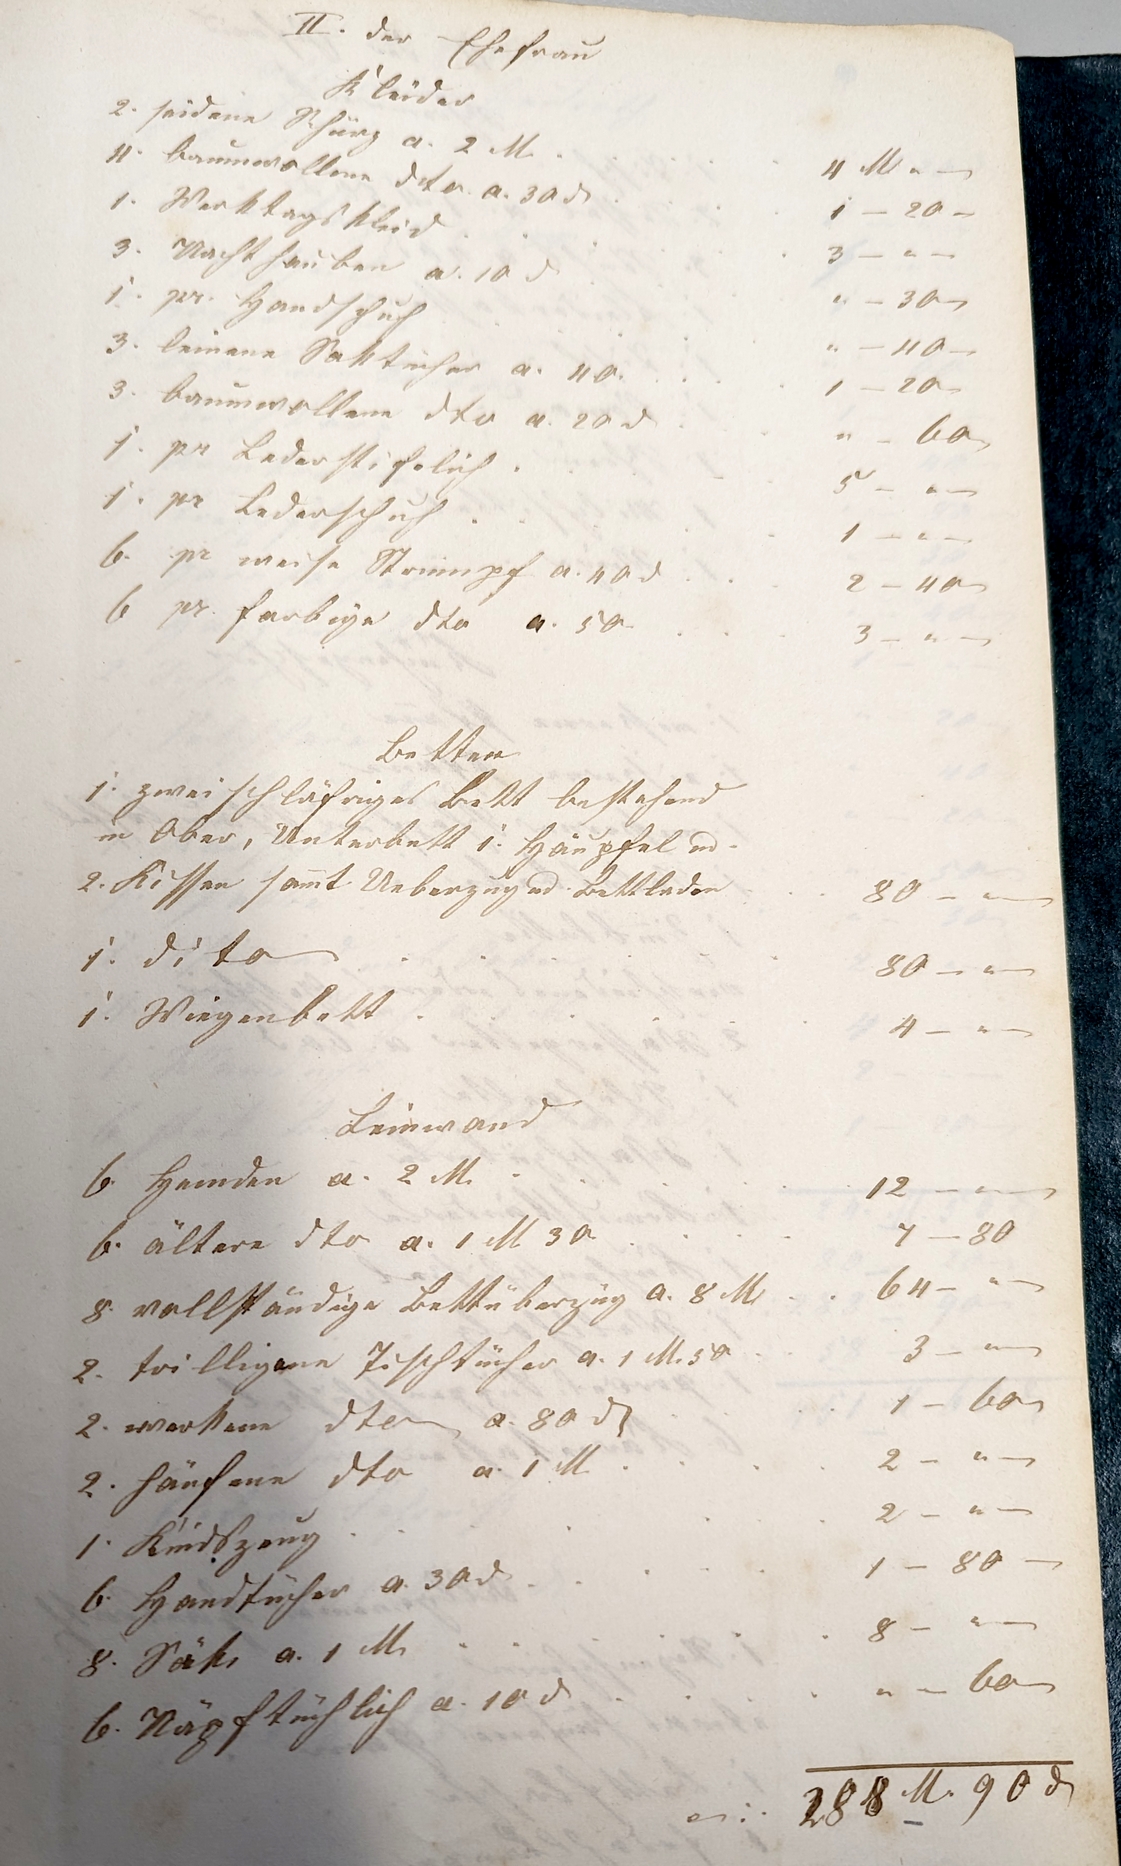 II. der Ehefrau
Kleider
2. seidene Schürz a. 2 M. . . . 4 M " —
4. baumwollene dto. a. 30 d . . 1 — 20 —
1. Werktagskleid . . . 3 — " —
3. Nachthauben a. 10 d . . " — 30 —
1. pr. Handschuh . . . " — 40 —
3. leinene Saktücher a. 40. . . 1 — 20 —
3. baumwollene dto a. 20 d . . " — 60
1. pr Lederstifelich . . . 5 — " —
1. pr Lederschuh . . . 1 — " —
6. pr weise Strümpf a. 40 d . . 2 — 40
6 pr. farbige dto a. 50 . . 3 — " —
Betten
1. zweischläfriges Bett bestehend
in Ober, Unterbett 1. Häupfel ud.
2. Kissen samt Ueberzug ud. Bettladen . . 80 — " —
1. dito . . . 80 — " —
1. Wiegenbett . . . 4 — " —
Leinwand
6. Hemden a. 2 M. . . . 12 — " —
6. ältere dto a. 1 M 30 . . . 7 — 80
8. vollständige Bettüberzüg a. 8 M . . 64 — " —
2. trilligene Tischtücher a. 1 M. 50 . . 3 — " —
2. werkene dto a. 80 d . . 1 — 60
2. häufene dto a. 1 M. . . 2 — " —
1. Kindszeug . . . 2 — " —
6. Handtücher a. 30 d . . . 1 — 80 —
8. Säk a. 1 M. . . 8 — " —
6. Näpftüchlich a. 10 d . . . " — 60
288 M. 90 d